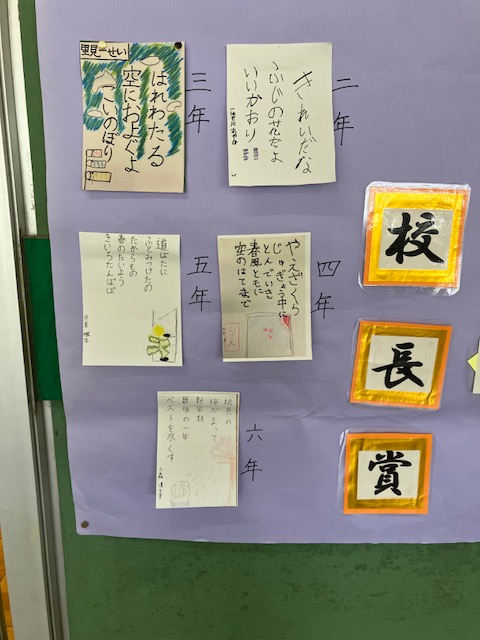 校
長
賞
二年
きれいだな
ふじの花だよ
いいかおり
三年
はれわたる
空におよぐよ
こいのぼり
里見一せい
四年
やえざくら
じゅぎょう中に
とんでいき
春風とともに
空のはてまで
りん
五年
道ばたに
ふとみつけたの
たからもの
春のたいよう
きいろたんぽぽ
六年
桃色の
桜がまって
新学期
最後の一年
ベストを尽くす